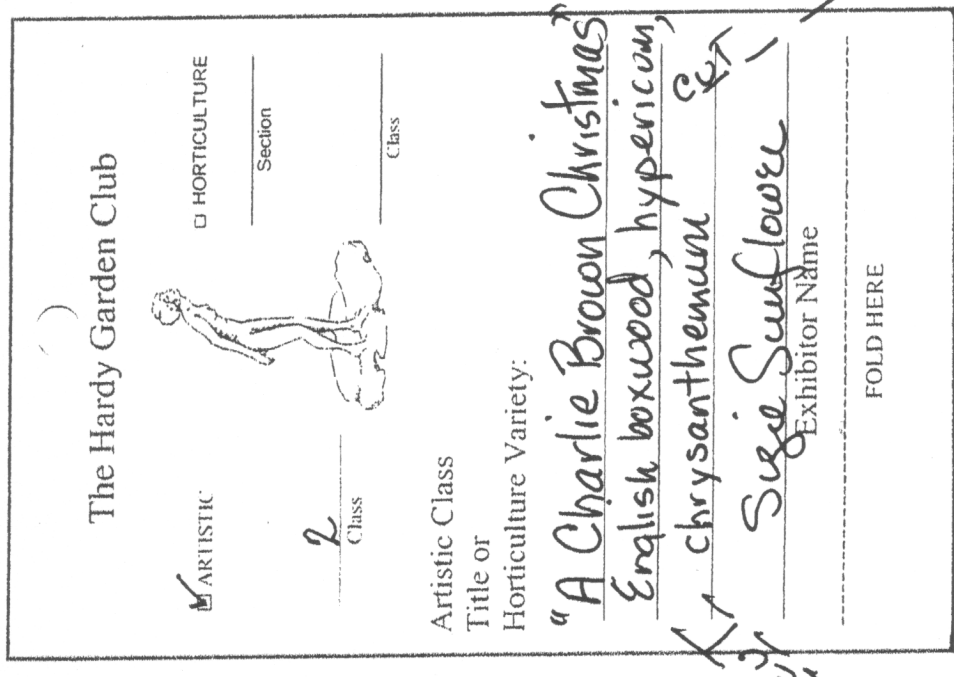 The Hardy Garden Club
☑ ARTISTIC
☐ HORTICULTURE
2
Class
Section
Class
Artistic Class
Title or
Horticulture Variety:
"A Charlie Brown Christmas"
English boxwood, hypericum,
chrysanthemum
CUT
Suzie Sunflower
Exhibitor Name
FOLD HERE